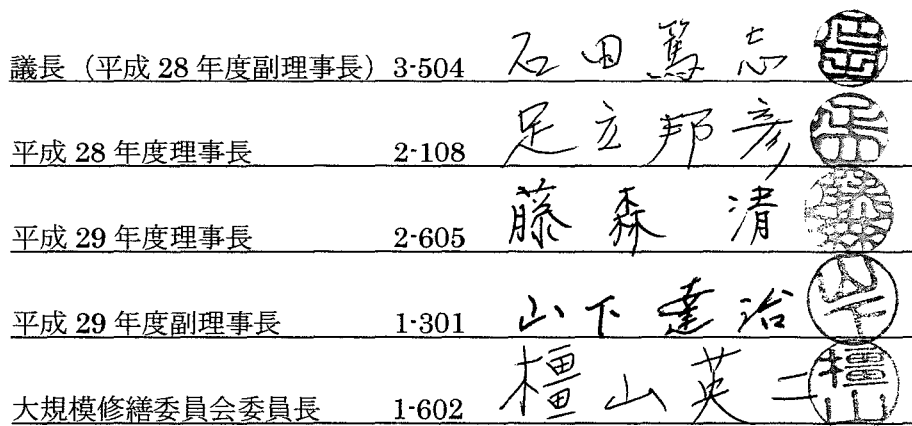 議長（平成 28 年度副理事長）3-504 石田篤志
平成 28 年度理事長 2-108 足立邦彦
平成 29 年度理事長 2-605 藤森清
平成 29 年度副理事長 1-301 山下達治
大規模修繕委員会委員長 1-602 橿山英二 橿山